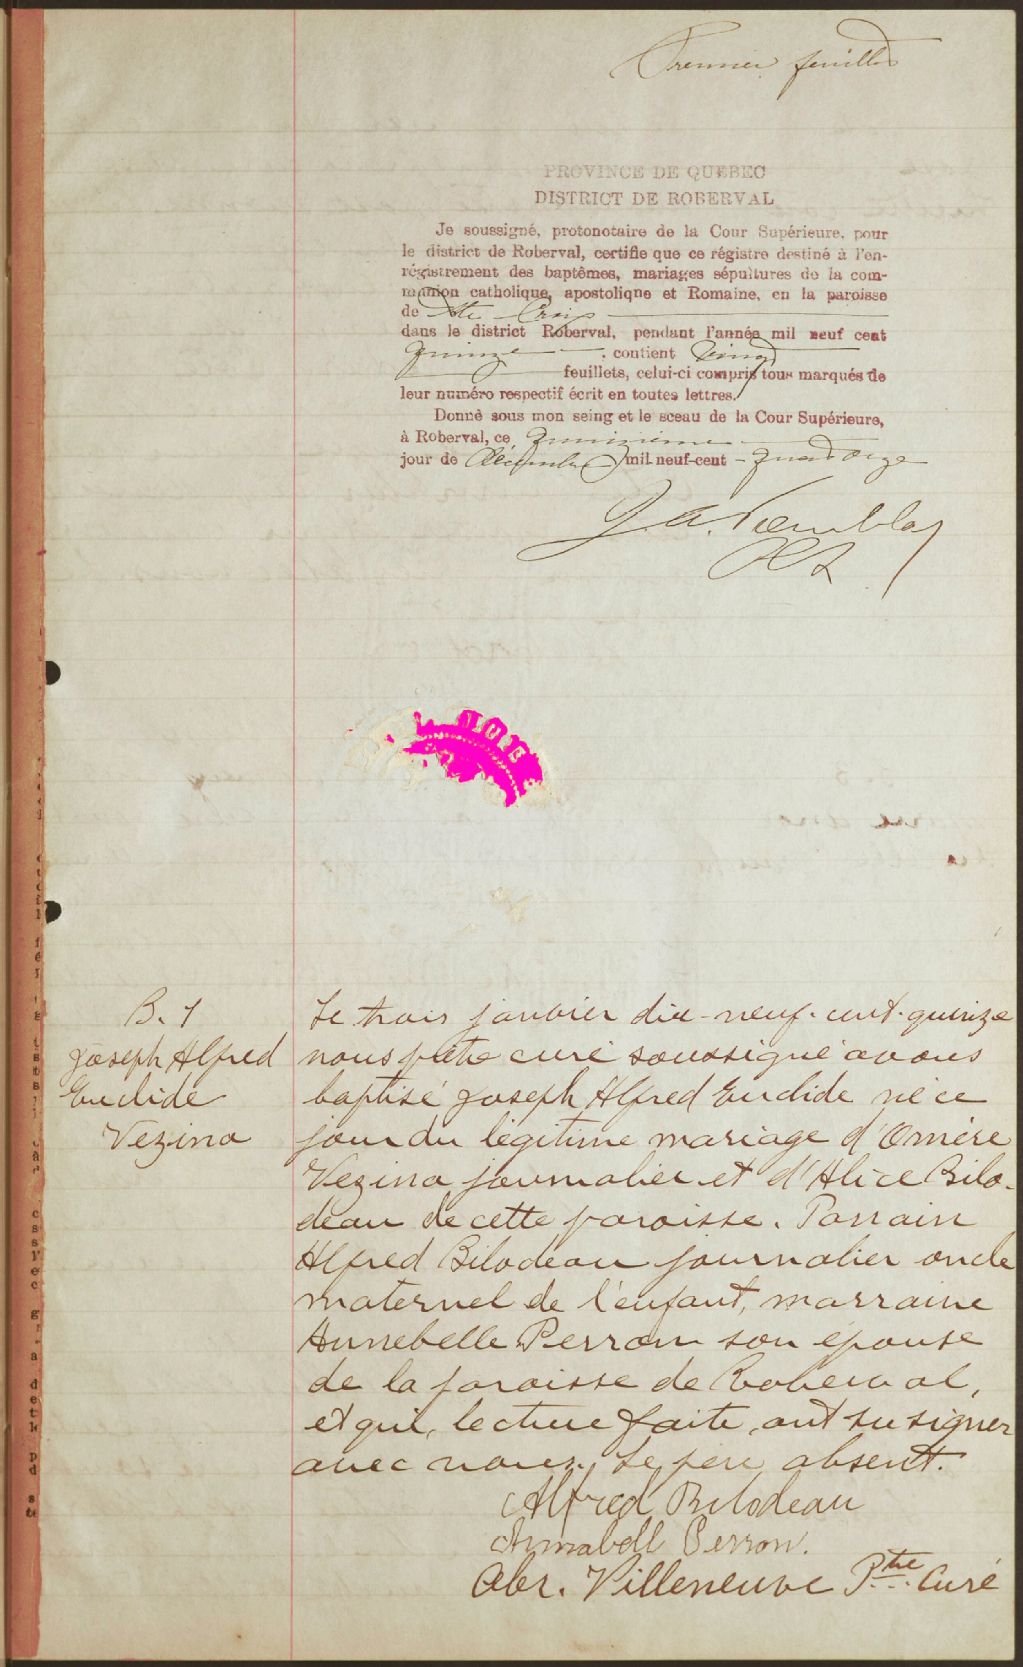 Premier feuillet
PROVINCE DE QUEBEC
DISTRICT DE ROBERVAL
Je soussigné, protonotaire de la Cour Supérieure, pour
le district de Roberval, certifie que ce régistre destiné à l'en-
régistrement des baptêmes, mariages sépultures de la com-
munion catholique, apostolique et Romaine, en la paroisse
de Ste Croix
dans le district Roberval, pendant l'année mil neuf cent
quinze, contient vingt
feuillets, celui-ci compris tous marqués de
leur numéro respectif écrit en toutes lettres.
Donné sous mon seing et le sceau de la Cour Supérieure,
à Roberval, ce quinzième
jour de décembre mil-neuf-cent-quatorze
J. A. Tremblay
B. 1
Joseph Alfred
Euclide
Vezina
Le trois janvier dix-neuf-cent-quinze
nous prêtre curé soussigné avons
baptisé Joseph Alfred Euclide né ce
jour du légitime mariage d'Omère
Vezina journalier et d'Alice Bilo-
deau de cette paroisse. Parrain
Alfred Bilodeau journalier oncle
maternel de l'enfant, marraine
Annebelle Perron son épouse
de la paroisse de Roberval,
et qui, lecture faite, ont su signer
avec nous. Le père absent.
Alfred Bilodeau
Annabell Perron.
Abr. Villeneuve Ptre Curé